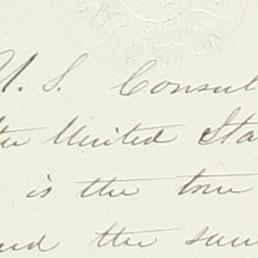 U. S. Consul
the United Sta
is the true
and the same